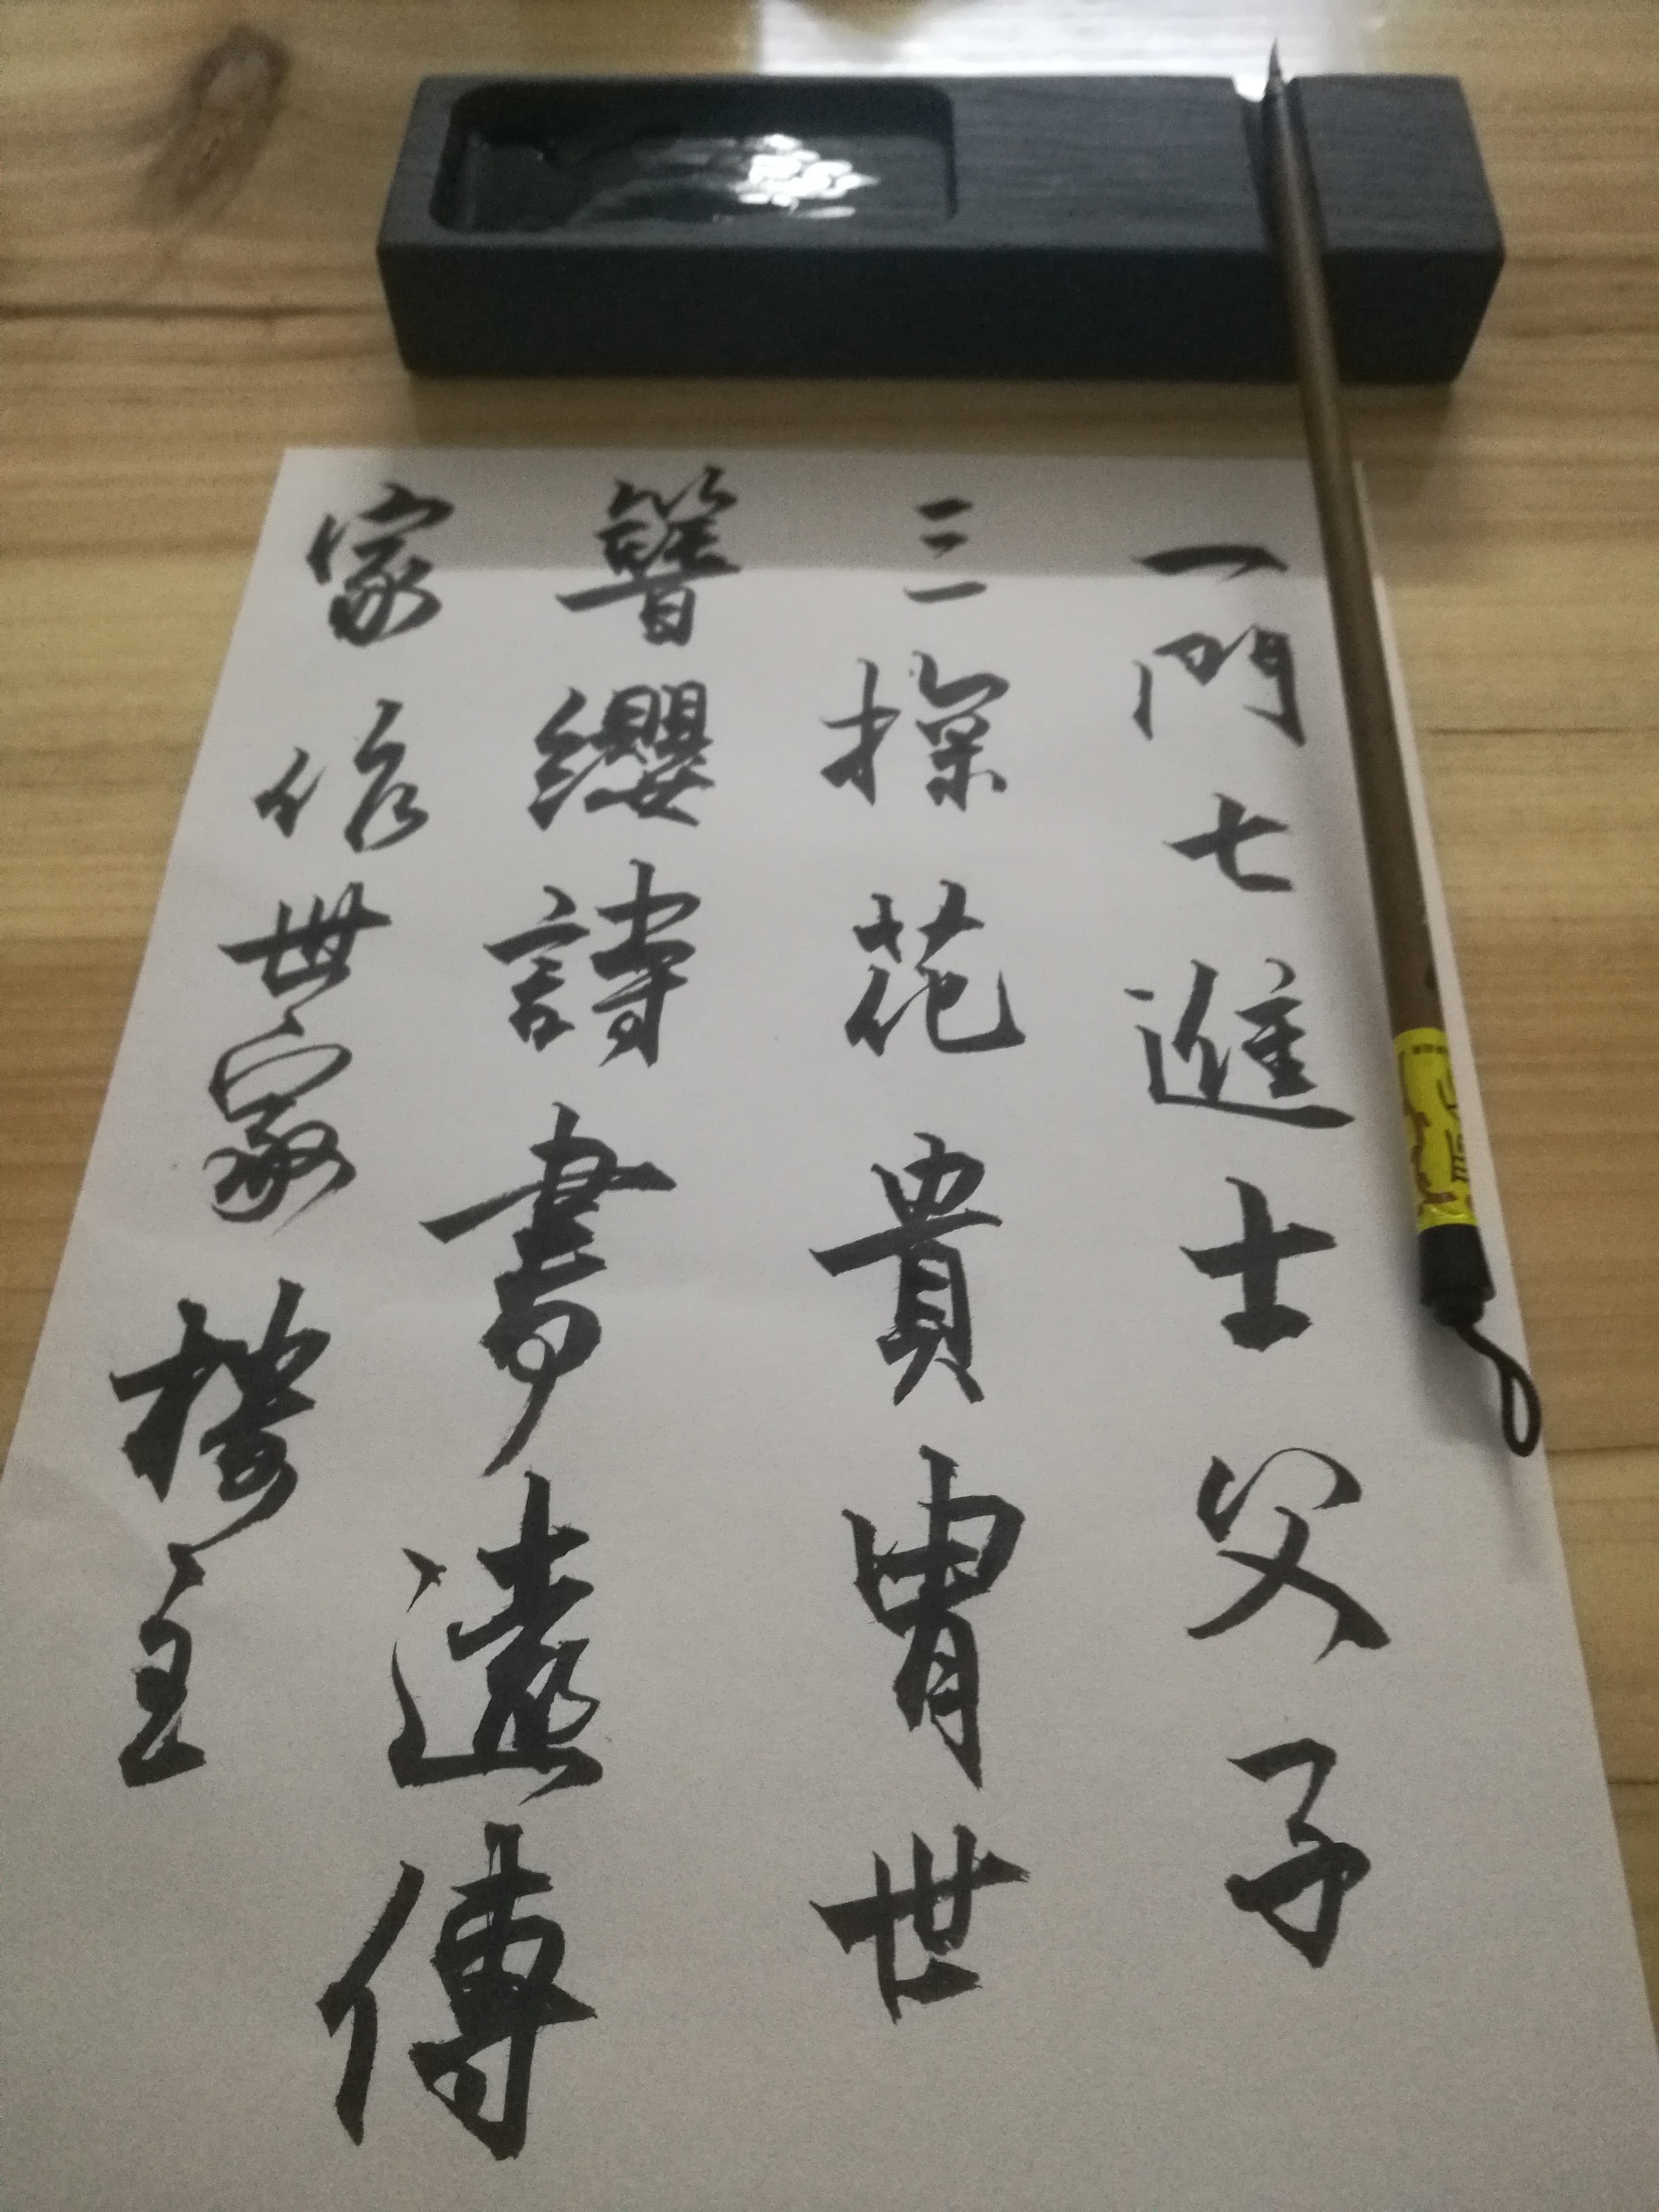 一門七進士父子
三探花貴冑世
簪纓詩書遠傳
家世家樓主